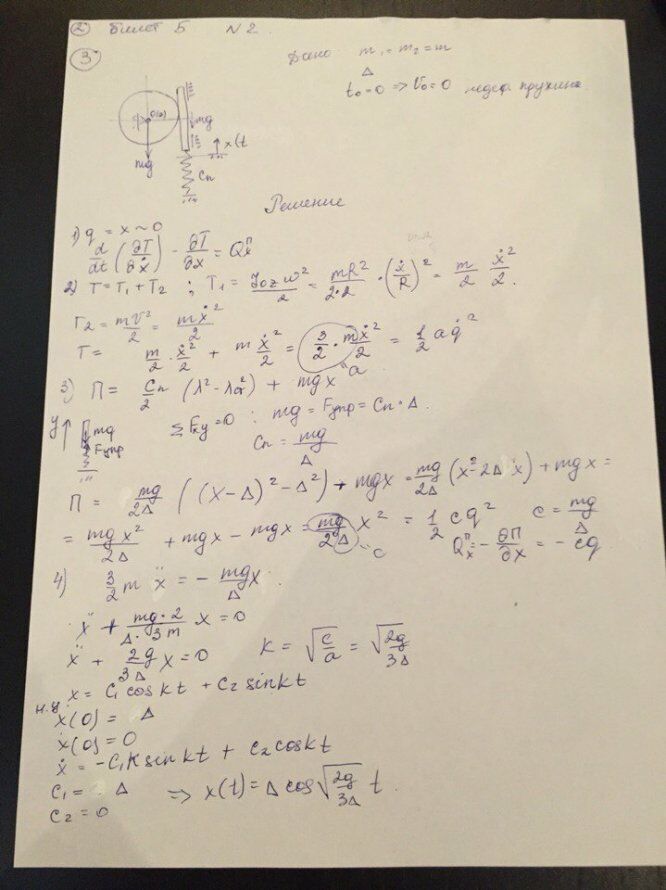 ② Билет 5 № 2
③
Дано m₁ = m₂ = m
Δ
t₀ = 0 => V₀ = 0 недеф. пружина
mg
x(t
mg
Cп
Решение
1) q = x ~ 0
d/dt (∂T/∂ẋ) - ∂T/∂x = Qₓᴨ
2) T = T₁ + T₂ ; T₁ = J₀z ω²/2 = mR²/2·2 · (ẋ/R)² = m/2 ẋ²/2.
T₂ = mV²/2 = mẋ²/2
T = m/2 · ẋ²/2 + m ẋ²/2 = 3/2 · mẋ²/2 = 1/2 a q̇²
a
3) П = Cп/2 (λ² - λст²) + mgx
y mg Fупр
ΣFₖy = 0 : mg = Fупр = Cп · Δ.
Cп = mg/Δ
П = mg/2Δ ((x - Δ)² - Δ²) + mgx = mg/2Δ (x² - 2Δx) + mgx =
= mgx²/2Δ + mgx - mgx = mg/2Δ x² = 1/2 cq² c = mg/Δ
"c Qₓᴨ = - ∂П/∂x = - cq
4) 3/2 m ẍ = - mg/Δ x.
ẍ + mg·2/Δ·3m x = 0
ẍ + 2g/3Δ x = 0 k = √(c/a) = √(2g/3Δ)
x = C₁ cos kt + C₂ sin kt
н.у.
x(0) = Δ
ẋ(0) = 0
ẋ = -C₁k sin kt + C₂ cos kt
C₁ = Δ => x(t) = Δ cos √(2g/3Δ) t.
C₂ = 0